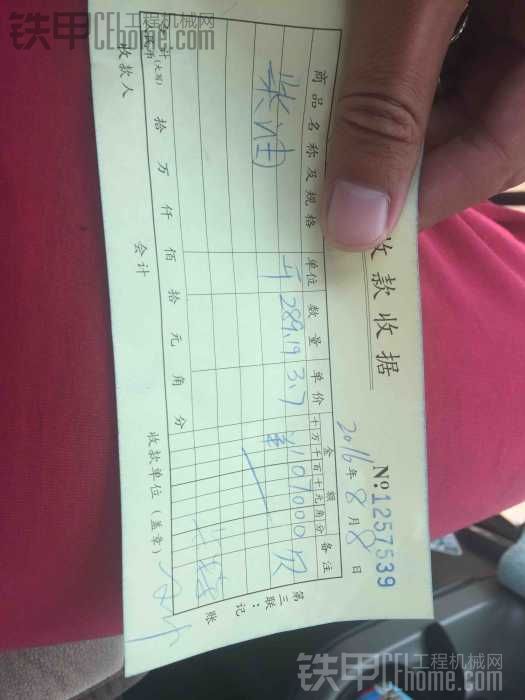 铁甲CEhome工程机械网
.com
收款收据
2016年8月8日
№:1257539
商品名称及规格 单位 数量 单价 金额 备注
十万千百十元角分
柴油 斤 289.19 3.7 ¥107000 欠
合计人民币(大写) 拾 万 仟 佰 拾 元 角 分
收款人 会计 收款单位(盖章)
第三联:记账
铁甲CEhome工程机械网
.com